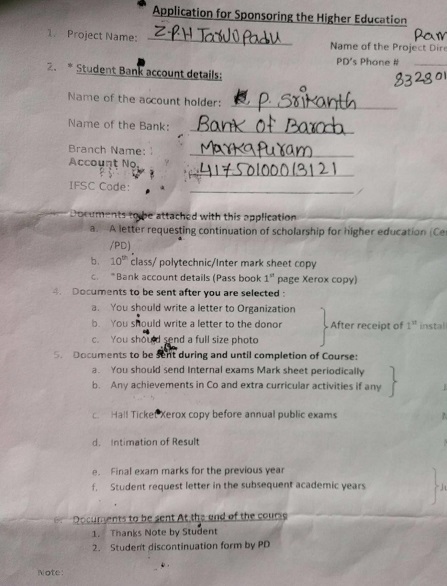 Application for Sponsoring the Higher Education
1. Project Name: Z.P.H Tarlupadu
Ram
Name of the Project Dire
PD's Phone #
832801
2. * Student Bank account details:
Name of the account holder: K. P. Srikanth
Name of the Bank: Bank of Baroda
Branch Name: Markapuram
Account No. 41750100013121
IFSC Code:
Documents to be attached with this application
a. A letter requesting continuation of scholarship for higher education (Ce
/PD)
b. 10th class/ polytechnic/Inter mark sheet copy
c. *Bank account details (Pass book 1st page Xerox copy)
4. Documents to be sent after you are selected :
a. You should write a letter to Organization
b. You should write a letter to the donor
After receipt of 1st instal
c. You should send a full size photo
5. Documents to be sent during and until completion of Course:
a. You should send Internal exams Mark sheet periodically
b. Any achievements in Co and extra curricular activities if any
c. Hall Ticket Xerox copy before annual public exams
d. Intimation of Result
e. Final exam marks for the previous year
f. Student request letter in the subsequent academic years
Documents to be sent At the end of the course
1. Thanks Note by Student
2. Student discontinuation form by PD
Note: